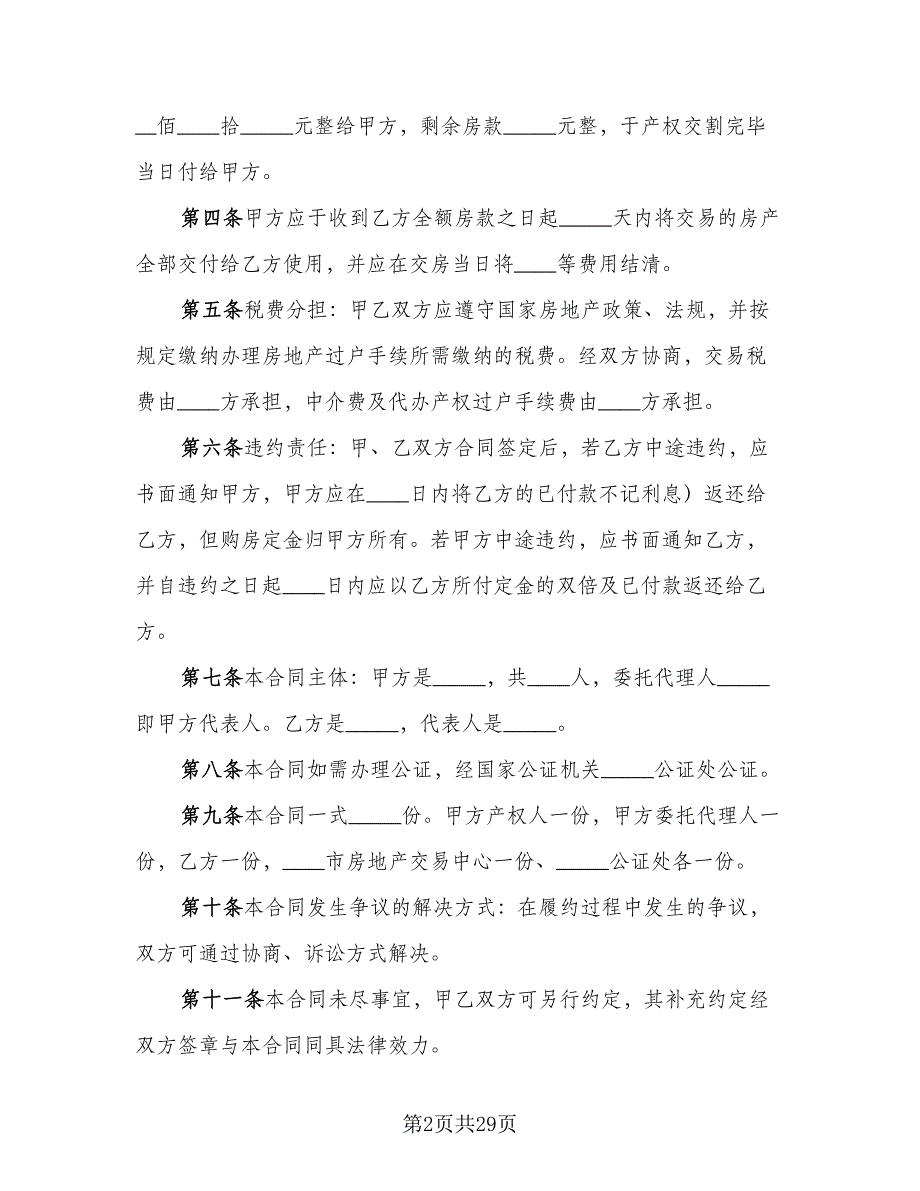 __佰____拾_____元整给甲方，剩余房款_____元整，于产权交割完毕
当日付给甲方。
第四条甲方应于收到乙方全额房款之日起_____天内将交易的房产
全部交付给乙方使用，并应在交房当日将____等费用结清。
第五条税费分担：甲乙双方应遵守国家房地产政策、法规，并按
规定缴纳办理房地产过户手续所需缴纳的税费。经双方协商，交易税
费由____方承担，中介费及代办产权过户手续费由____方承担。
第六条违约责任：甲、乙双方合同签定后，若乙方中途违约，应
书面通知甲方，甲方应在____日内将乙方的已付款不记利息）返还给
乙方，但购房定金归甲方所有。若甲方中途违约，应书面通知乙方，
并自违约之日起____日内应以乙方所付定金的双倍及已付款返还给乙
方。
第七条本合同主体：甲方是_____，共____人，委托代理人_____
即甲方代表人。乙方是_____，代表人是_____。
第八条本合同如需办理公证，经国家公证机关_____公证处公证。
第九条本合同一式_____份。甲方产权人一份，甲方委托代理人一
份，乙方一份，____市房地产交易中心一份、_____公证处各一份。
第十条本合同发生争议的解决方式：在履约过程中发生的争议，
双方可通过协商、诉讼方式解决。
第十一条本合同未尽事宜，甲乙双方可另行约定，其补充约定经
双方签章与本合同同具法律效力。
第2页共29页